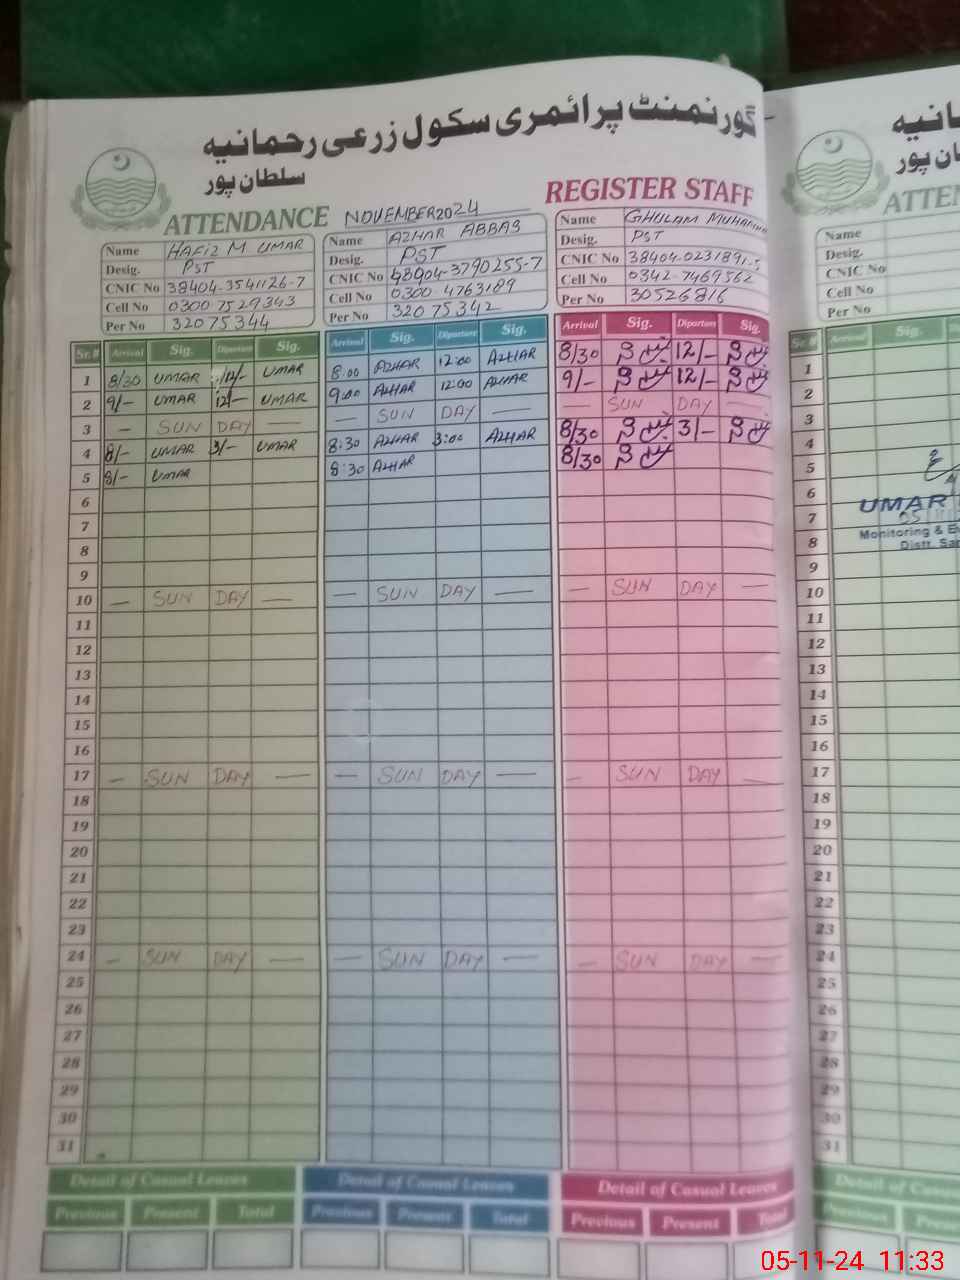 گورنمنٹ پرائمری سکول زرعی رحمانیہ
سلطان پور
ATTENDANCE NOVEMBER 2024 REGISTER STAFF
Name HAFIZ M UMAR
Desig. PST
CNIC No 38404-3541126-7
Cell No 0300 7529343
Per No 32075344
Name AZHAR ABBAS
Desig. PST
CNIC No 48904-3790255-7
Cell No 0300-4763189
Per No 32075342
Name GHULAM
Desig. PST
CNIC No 38404-0231891-5
Cell No 0342-7469562
Per No 30526816
Sr.# Arrival Sig. Diparture Sig. Arrival Sig. Diparture Sig. Arrival Sig. Diparture Sig.
1 8/30 UMAR 12/- UMAR 8:00 AZHAR 12:00 AZHAR 8/30 12/-
2 9/- UMAR 12/- UMAR 9:00 AZHAR 12:00 AZHAR 9/- 12/-
3 — SUN DAY — — SUN DAY — — SUN DAY —
4 8/- UMAR 3/- UMAR 8:30 AZHAR 3:00 AZHAR 8/30 3/-
5 8/- UMAR 8:30 AZHAR 8/30
6
7
8
9
10 — SUN DAY — — SUN DAY — — SUN DAY —
11
12
13
14
15
16
17 — SUN DAY — — SUN DAY — — SUN DAY —
18
19
20
21
22
23
24 — SUN DAY — — SUN DAY — — SUN DAY —
25
26
27
28
29
30
31
Detail of Casual Leaves Detail of Casual Leaves Detail of Casual Leaves
Previous Present Total Previous Present Total Previous Present Total
سلطان پور
Name
Desig.
CNIC No
Cell No
Per No
Sr.# Arrival Sig.
1
2
3
4
5
6
7
8
UMAR
Monitoring &
Distt.
9
10
11
12
13
14
15
16
17
18
19
20
21
22
23
24
25
26
27
28
29
30
31
Detail of
Previous
05-11-24 11:33